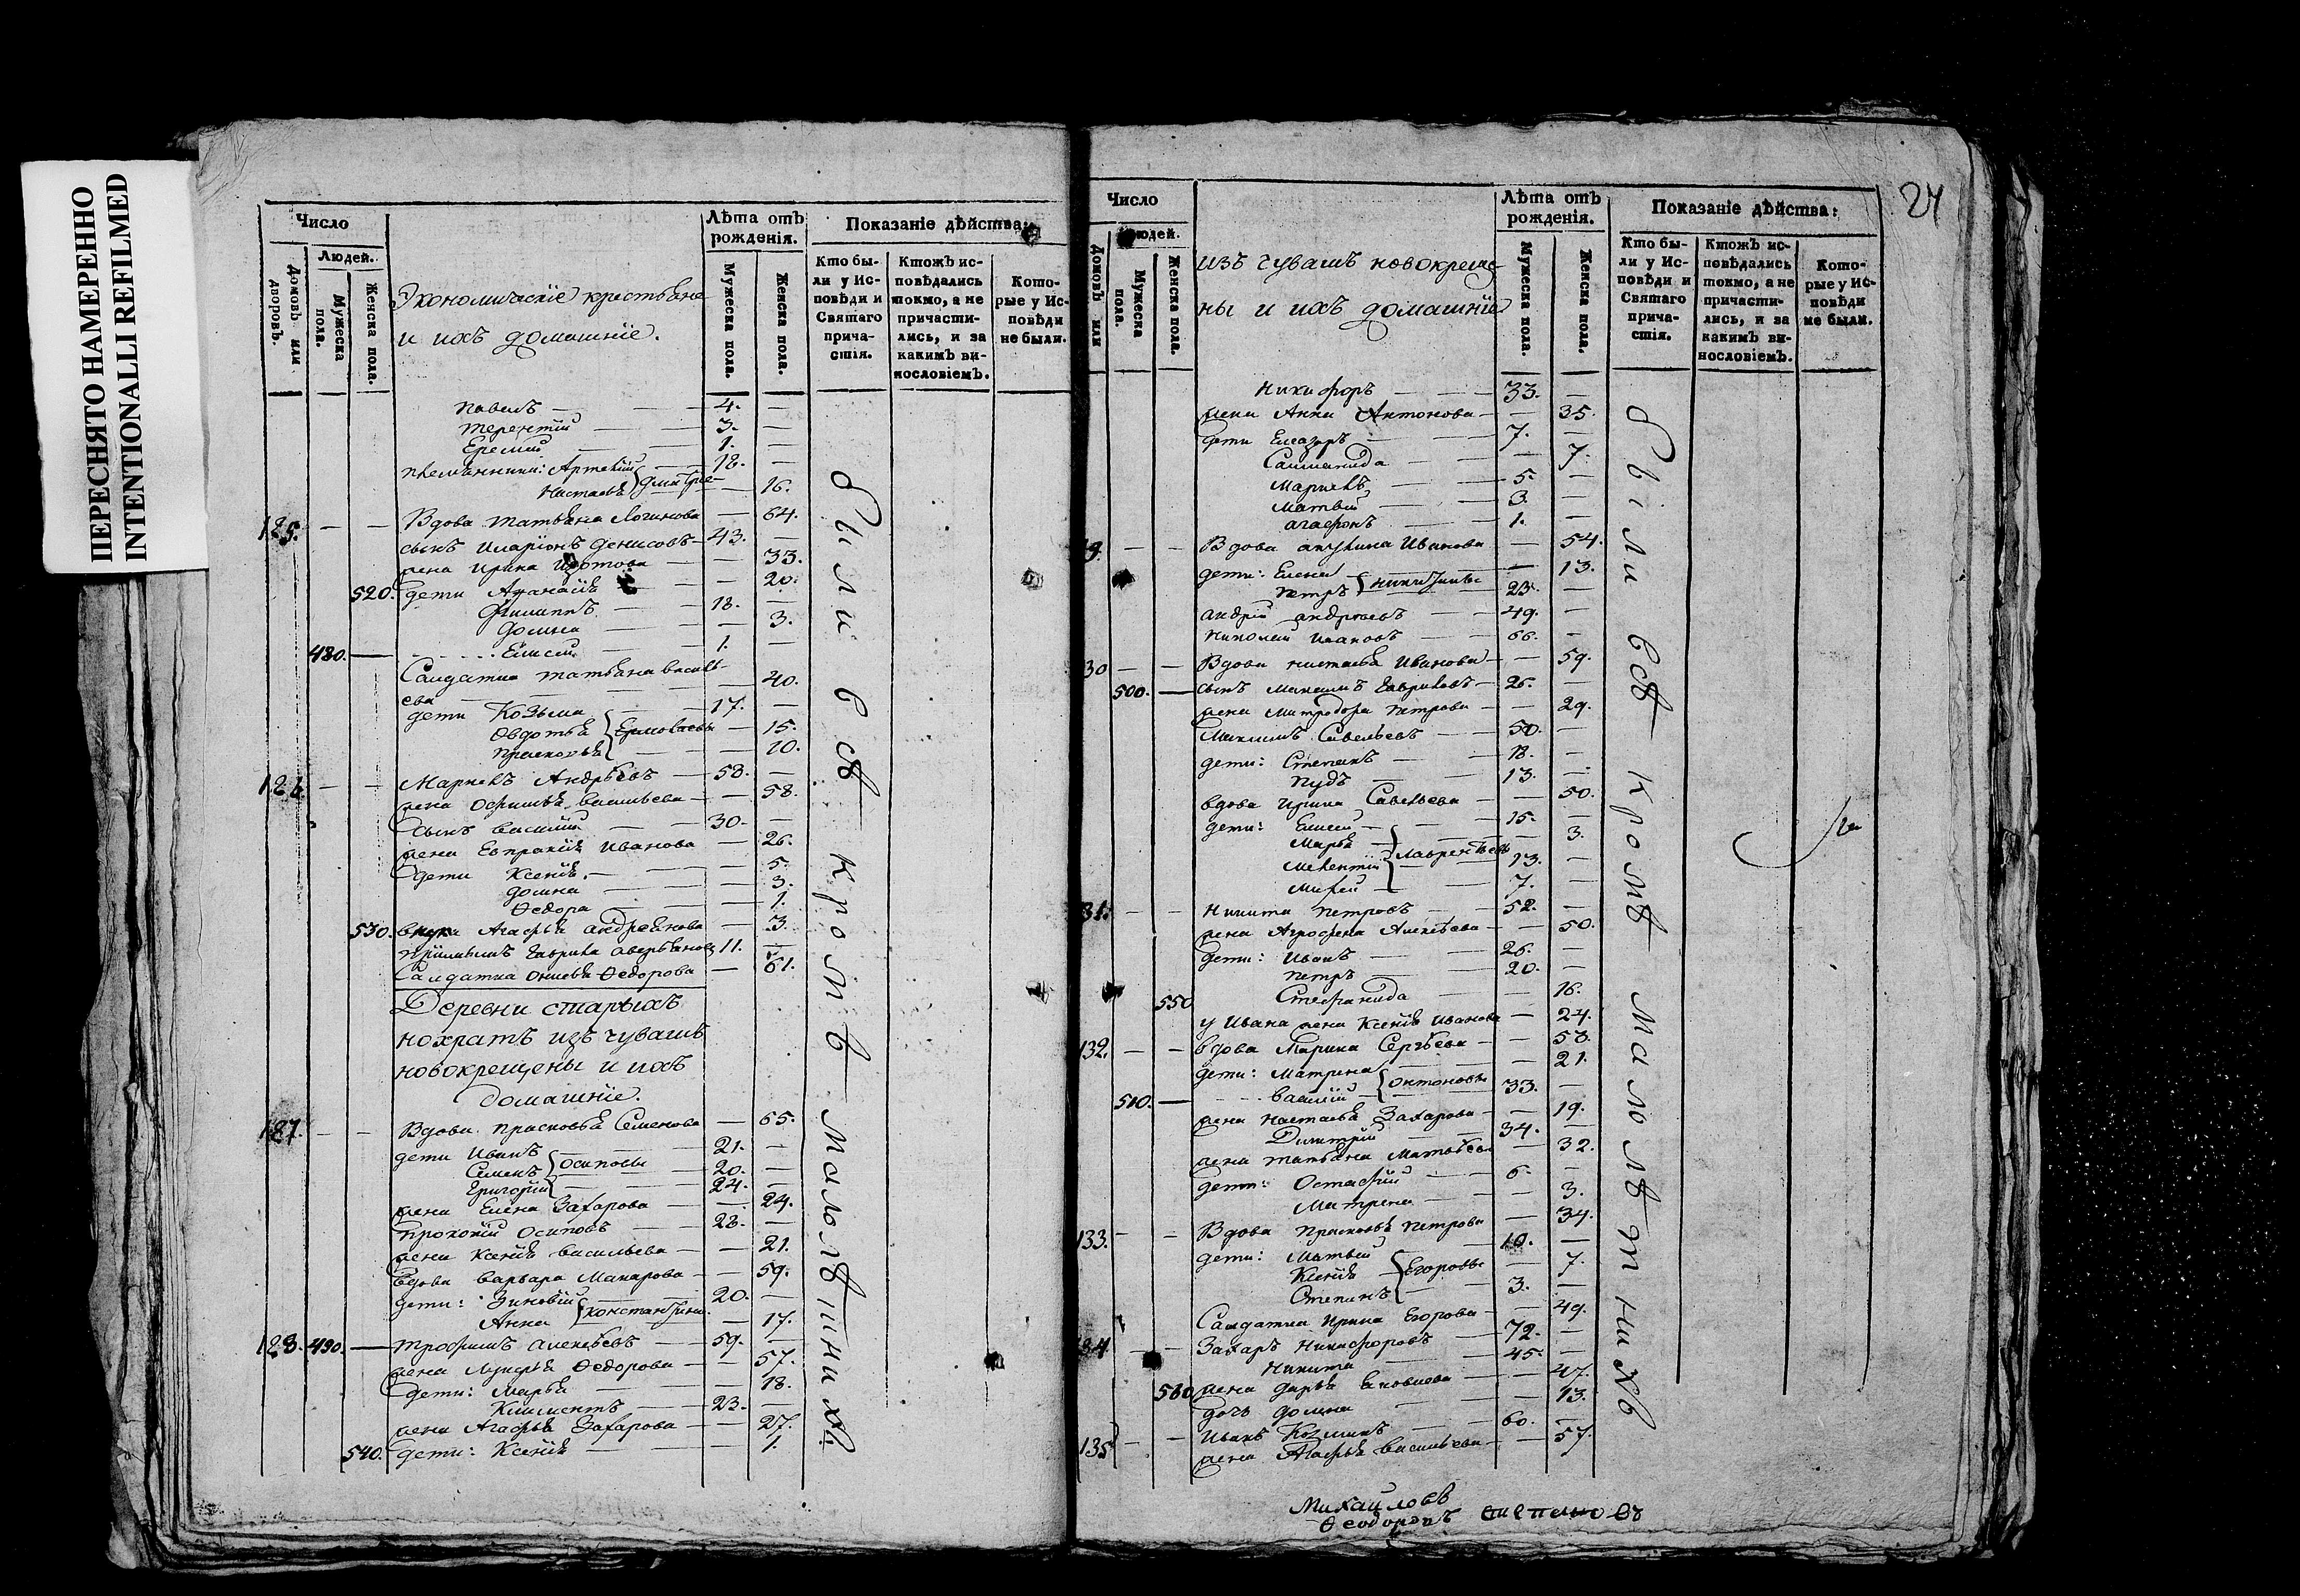 ПЕРЕСНЯТО НАМЕРЕННО
INTENTIONALLI REFILMED
Число
Людей.
Домовъ или дворовъ.
Мужеска пола.
Женска пола.
Экономическіе крестьяне
и ихъ домашніе.
Лѣта отъ рожденія.
Мужеска пола.
Женска пола.
Показаніе дѣйства:
Кто бы-
ли у Ис-
повѣди и
Святаго
прича-
стія.
Ктожъ ис-
повѣдались
токмо, а не
причасти-
лись, и за
какимъ ви-
нословіемъ.
Кото-
рые у Ис-
повѣди
не были.
Павелъ — 4. —
Терентій — 3. —
Еремей — 1. —
племянники: Артемій — 18. —
Настасья — 16.
185. — — Вдова Татьяна Логинова — 64.
сынъ Иларіонъ Денисовъ — 43. —
жена Ирина — 33.
520. дети — 20.
Филиппъ — 18. —
Домна — 3.
480. — Елисей — 1. —
Салдатка Татьяна Василь-
ева — 40.
дети Козьма — 17. —
Овдотья Ермолаевы — 15.
Прасковья — 10.
186. — — Маркелъ Андрѣевъ — 58. —
жена Офимья Васильева — 58.
Сынъ Василий — 30. —
жена Евпраксія Иванова — 26.
дети Ксенія — 5.
Домна — 3.
Ѳедора — 1.
530. внука Агафья Андреянова — 3.
Гаврила Аверьяновъ 11. —
Салдатка Ѳедорова — 61.
Деревни старыхъ
нохратъ изъ чувашъ
новокрещены и ихъ
домашніе.
187. — — Вдова Прасковья Семенова — 65.
дети Иванъ — 21. —
Семенъ Осиповы — 20. —
Григорій — 24. —
жена Елена Захарова — 24.
Прокопій Осиповъ — 23. —
жена Ксенія Васильева — 21.
Вдова Варвара Макарова — 59.
дети: Зиновій — 20. —
Анна — 17.
188. 490. — Трофимъ Алексѣевъ — 59. —
жена Лукерья Ѳедорова — 57.
дети: Марья — 18.
Климентъ — 23. —
жена Агафья Захарова — 27.
540. дети: Ксенія — 1.
были всѣ кромѣ малолѣтнихъ
24
Число
Людей.
Домовъ или
Мужеска пола.
Женска пола.
изъ чувашъ новокреще-
ны и ихъ домашніе
Лѣта отъ рожденія.
Мужеска пола.
Женска пола.
Показаніе дѣйства:
Кто бы-
ли у Ис-
повѣди и
Святаго
прича-
стія.
Ктожъ ис-
повѣдались
токмо, а не
причасти-
лись, и за
какимъ ви-
нословіемъ.
Кото-
рые у Ис-
повѣди
не были.
Никифоръ — 33. —
жена Анна Антонова — 35.
дети Елеазаръ — 7. —
— 7.
Маркелъ — 5. —
Матвей — 3. —
Агафонъ — 1. —
9. — — Вдова Акулина Иванова — 54.
дети: Елена — 13.
Петръ — 23. —
Андрей Андреевъ — 49. —
Николай Ивановъ — 66. —
30 — — Вдова Настасья Иванова — 59.
500. — сынъ Максимъ Гавриловъ — 26. —
жена Митродора Петрова — 29.
Максимъ Савельевъ — 50. —
дети: Степанъ — 18. —
Пудъ — 13. —
вдова Ирина Савельева — 50.
дети: Елисей — 15. —
Марья — 3.
Мелентій Лаврентьевы — 13. —
Михей — 7. —
31. — — Никита Петровъ — 52. —
жена Агрофена Алексѣева — 50.
дети: Иванъ — 26. —
Петръ — 20. —
550 Стефанида — 16.
у Ивана жена Ксенія Иванова — 24.
132. — — вдова Марина Сергѣева — 53.
дети: Матрена — 21.
510. — Василій Онтоновы 33. —
жена Настасья Захарова — 19.
Димитрій — 34. —
жена Татьяна Матвѣева — 32.
дети: Остафій — 6. —
Матрена — 3.
133. — — Вдова Прасковья Петрова — 34.
дети: Матвей — 10. —
Ксенія Егоровы — 7.
Степанъ — 3. —
Салдатка Ирина Егорова — 49.
34. — Захаръ Никифоровъ — 72. —
Никита — 45. —
560 жена Дарья Яковлева — 47.
дочь Домна — 13.
135 — — Иванъ Козминъ — 60. —
жена Агафья Васильева — 57.
были всѣ кромѣ малолѣтнихъ
Михайловъ
Ѳеодоровъ Степановъ